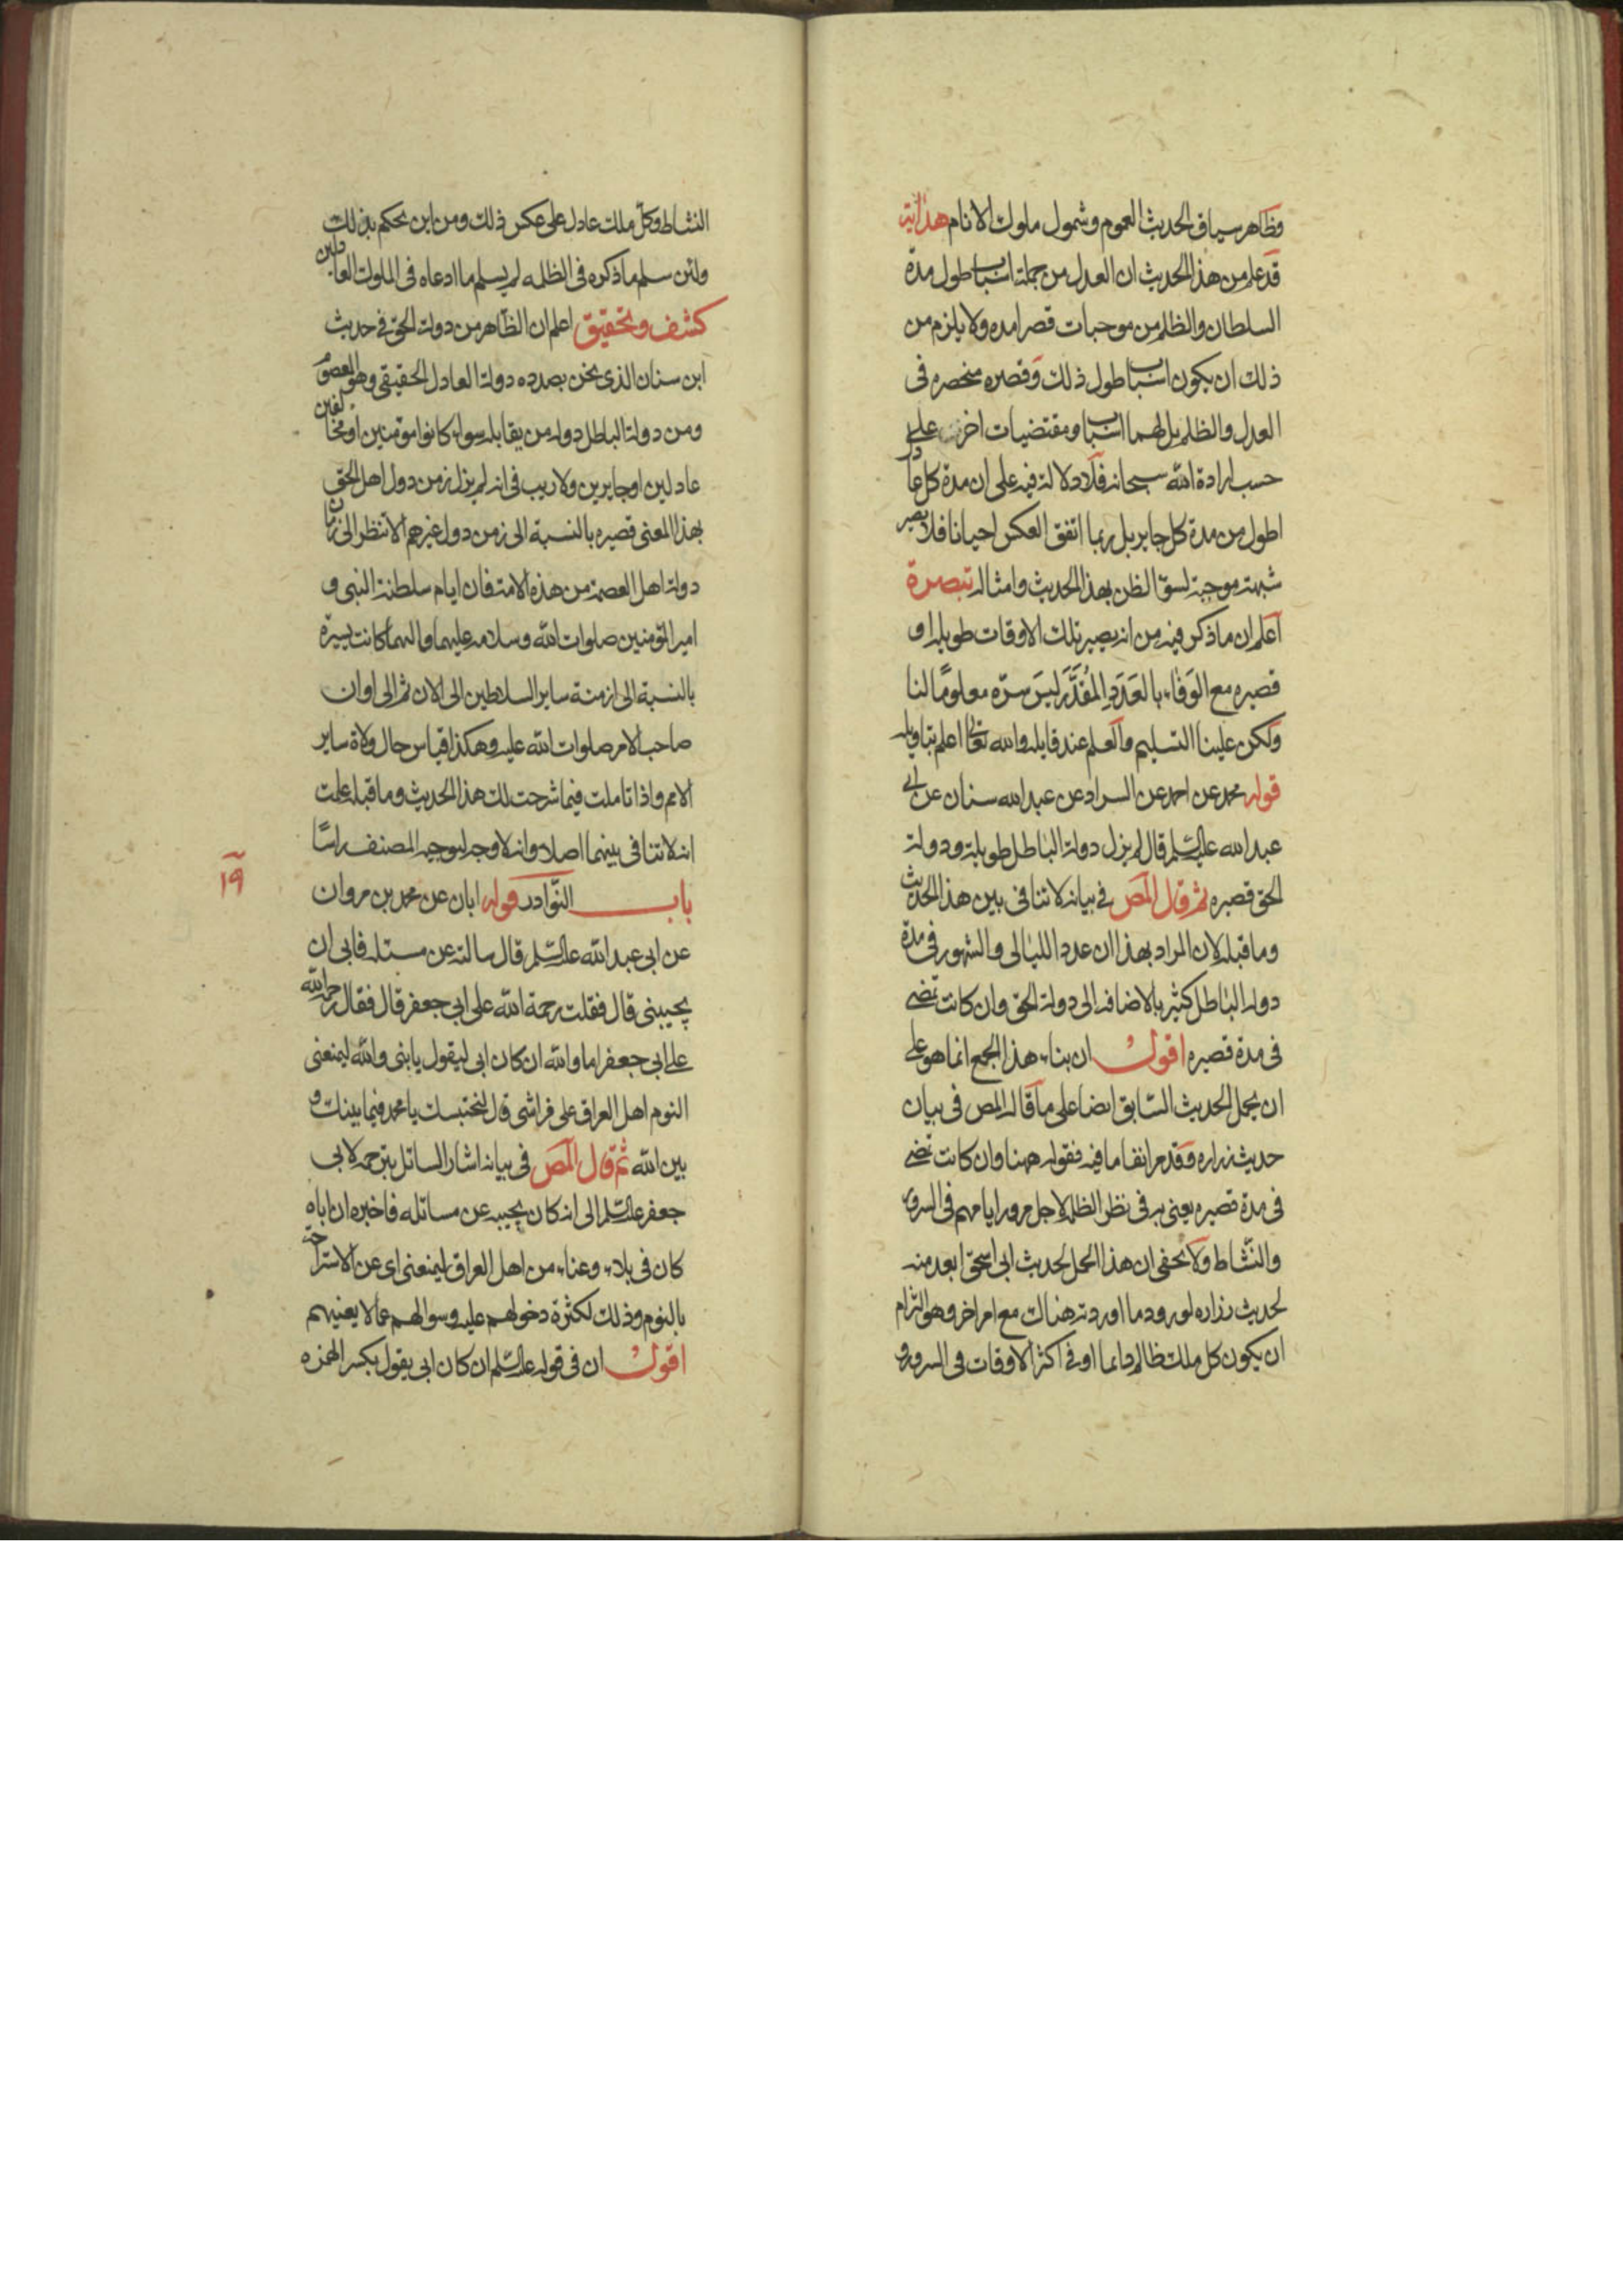 وظاهر سياق الحديث العموم وشمول ملوك الانام هداية
قد علم من هذا الحديث ان العدل من جملة اسباب طول مدة
السلطان والظلم من موجبات قصر امده ولا يلزم من
ذلك ان يكون اسباب طول ذلك وقصره منحصره فى
العدل والظلم بل لهما اسباب ومقتضيات اخر على
حسب ارادة الله سبحانه فلا دلالة فيه على ان مدة كل عادل
اطول من مدة كل جاير بل ربما اتفق العكس احيانا فلا تصير
شبهة موجبة لسوّ الظن بهذا الحديث وامثاله تبصرة
اعلم ان ما ذكر فيه من انه يصير تلك الاوقات طويله او
قصيره مع الوَفَاء بالعَدَدِ المُقَدَّر ليسَ سرّه معلومًا لنا
ولكن علينا التسليم والعلم عند قايله والله تعالى اعلم بتاويله
قوله محمد عن احمد عن السراد عن عبد الله سنان عن ابى
عبد الله عليه السّلم قال لم يزل دولة الباطل طويلة ودولة
الحق قصيره ثم قال المص فى بيانه لا تنافى بين هذا الحديث
وما قبله لان المراد بهذا ان عدد الليالى والشهور فى مدة
دولة الباطل كثير بالاضافه الى دولة الحق وان كانت تمضى
فى مدة قصيره اقول ان بناء هذا الجمع انما هو على
ان يحمل الحديث السّابق ايضا على ما قاله المص فى بيان
حديث زراره وقد مر انفا ما فيه فقوله ههنا وان كانت تمضى
فى مدة قصيره يعنى به فى نظر الظلمة لاجل مرور ايامهم فى السرور
والنّشاط ولا يخفى ان هذا المحمل لحديث ابى اسحق ابعد منه
لحديث زراره لورود ما اوردته هناك مع امر اخر وهو التزام
ان يكون كل ملك ظالم دايما او فى اكثر الاوقات فى السرور و
النشاط وكلّ ملك عادل على عكس ذلك ومن اين يحكم بذلك
ولئن سلم ما ذكره فى الظلمه لم يسلم ما ادعاه فى الملوك العادلين
كشف وتحقيق اعلم ان الظاهر من دولة الحق فى حديث
ابن سنان الذى نحن بصدده دولة العادل الحقيقى وهو المعصوم
ومن دولة الباطل دوله من يقابله سواء كانوا مؤمنين او مخالفين
عادلين او جايرين ولا ريب فى انه لم يزل زمن دول اهل الحق
بهذا المعنى قصيره بالنسبة الى زمن دول غيرهم الا تنظر الى زمان
دولة اهل العصمة من هذه الامة فان ايام سلطنة النبى و
امير المؤمنين صلوات الله وسلامه عليهما والهما كانت يسيرة
بالنسبة الى ازمنة ساير السلاطين الى الان ثم الى اوان
صاحب الامر صلوات الله عليه وهكذا قياس حال ولاة ساير
الامم واذا تاملت فيما شرحت لك هذا الحديث وما قبله علمت
انه لا تنافى بينهما اصلا وانه لا وجه لتوجيه المصنف راسًا
١٩
باب النّوادر قوله ابان عن محمد بن مروان
عن ابى عبد الله عليه السّلم قال سالته عن مسئله فابى ان
يجيبنى قال فقلت رحمة الله على ابى جعفر قال فقال رحمة الله
على ابى جعفر اما والله ان كان ابى ليقول يا بنى والله ليمنعنى
النوم اهل العراق على فراشى قال لنحتبسك يا محمد فيما بينك و
بين الله ثم قال المص فى بيانه اشار السائل بترحمه لابى
جعفر عليه السّلم الى انه كان يجيبه عن مسائله فاخبره ان اباه
كان فى بلاء وعناء من اهل العراق ليمنعنى اى عن الاستراحة
بالنوم وذلك لكثرة دخولهم عليه وسوالهم عما لا يعنيهم
اقول ان فى قوله عليه السّلم ان كان ابى يقول بكسر الهمزه